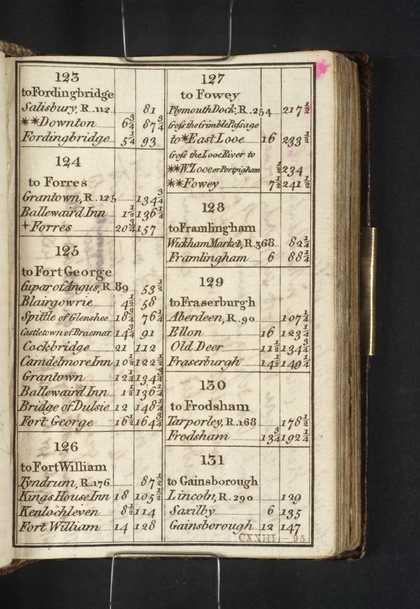 123
to Fordingbridge
Salisbury, R. 112 81
**Downton 6¾ 87¾
Fordingbridge 5¼ 93
124
to Forres
Grantown, R. 125 134¾
Ballawaird Inn 1½ 136¼
+Forres 20¾ 157
125
to Fort George
Cupar of Angus, R. 89 53½
Blairgowrie 4½ 58
Spittle of Glenshee 18½ 76½
Castletown of Braemar 14½ 91
Cockbridge 21 112
Camdelmore Inn 10½ 122½
Grantown 12¼ 134¾
Ballawaird Inn 1½ 136¼
Bridge of Dulsie 12 148¼
Fort George 16½ 164¾
126
to Fort William
Tyndrum, R. 176 87½
Kings House Inn 18 105½
Kenlochleven 8½ 114
Fort William 14 128
127
to Fowey
Plymouth Dock, R. 254 217½
Cross the Crimble Passage
to *East Looe 16 233½
Cross the Looe River to
**W. Looe or Portpigham ½ 234
**Fowey 7½ 241½
128
to Framlingham
Wickham Market, R. 368 82¼
Framlingham 6 88¼
129
to Fraserburgh
Aberdeen, R. 90 107¼
Ellon 16 123¼
Old Deer 11½ 134¾
Fraserburgh 14½ 149¼
130
to Frodsham
Tarporley, R. 168 178½
Frodsham 13¾ 192¼
131
to Gainsborough
Lincoln, R. 290 129
Saxilby 6 135
Gainsborough 12 147